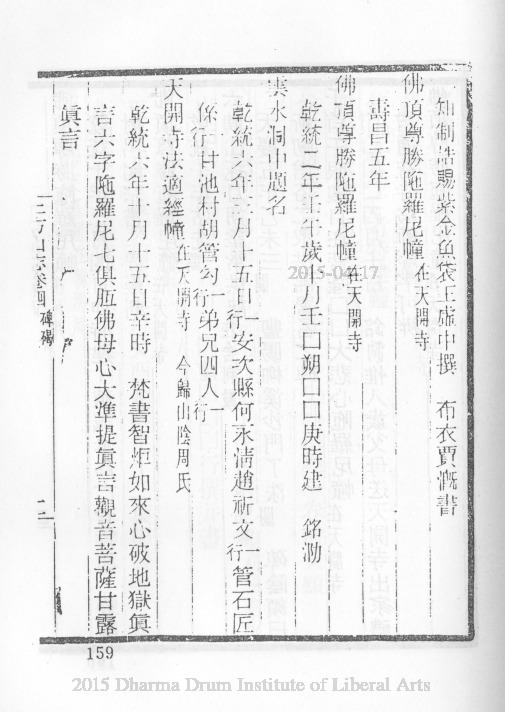 知制誥賜紫金魚袋王虛中撰　布衣賈溉書
佛頂尊勝陁羅尼幢在天開寺
壽昌五年
佛頂尊勝陁羅尼幢在天開寺
乾統二年壬午歲十月壬囗朔囗囗庚時建　銘泐
雲水洞中題名
乾統六年三月十五日一行安次縣何永清趙祈文一行管石匠
係一行甘池村胡管勾一行弟兄四人一行
天開寺法適經幢在天開寺　今歸山陰周氏
乾統六年十月十五日辛時　梵書智炬如來心破地獄眞
言六字陁羅尼七俱胝佛母心大準提眞言觀音菩薩甘露
眞言
上方山志卷四　碑碣
159
2015-04-17
2015 Dharma Drum Institute of Liberal Arts